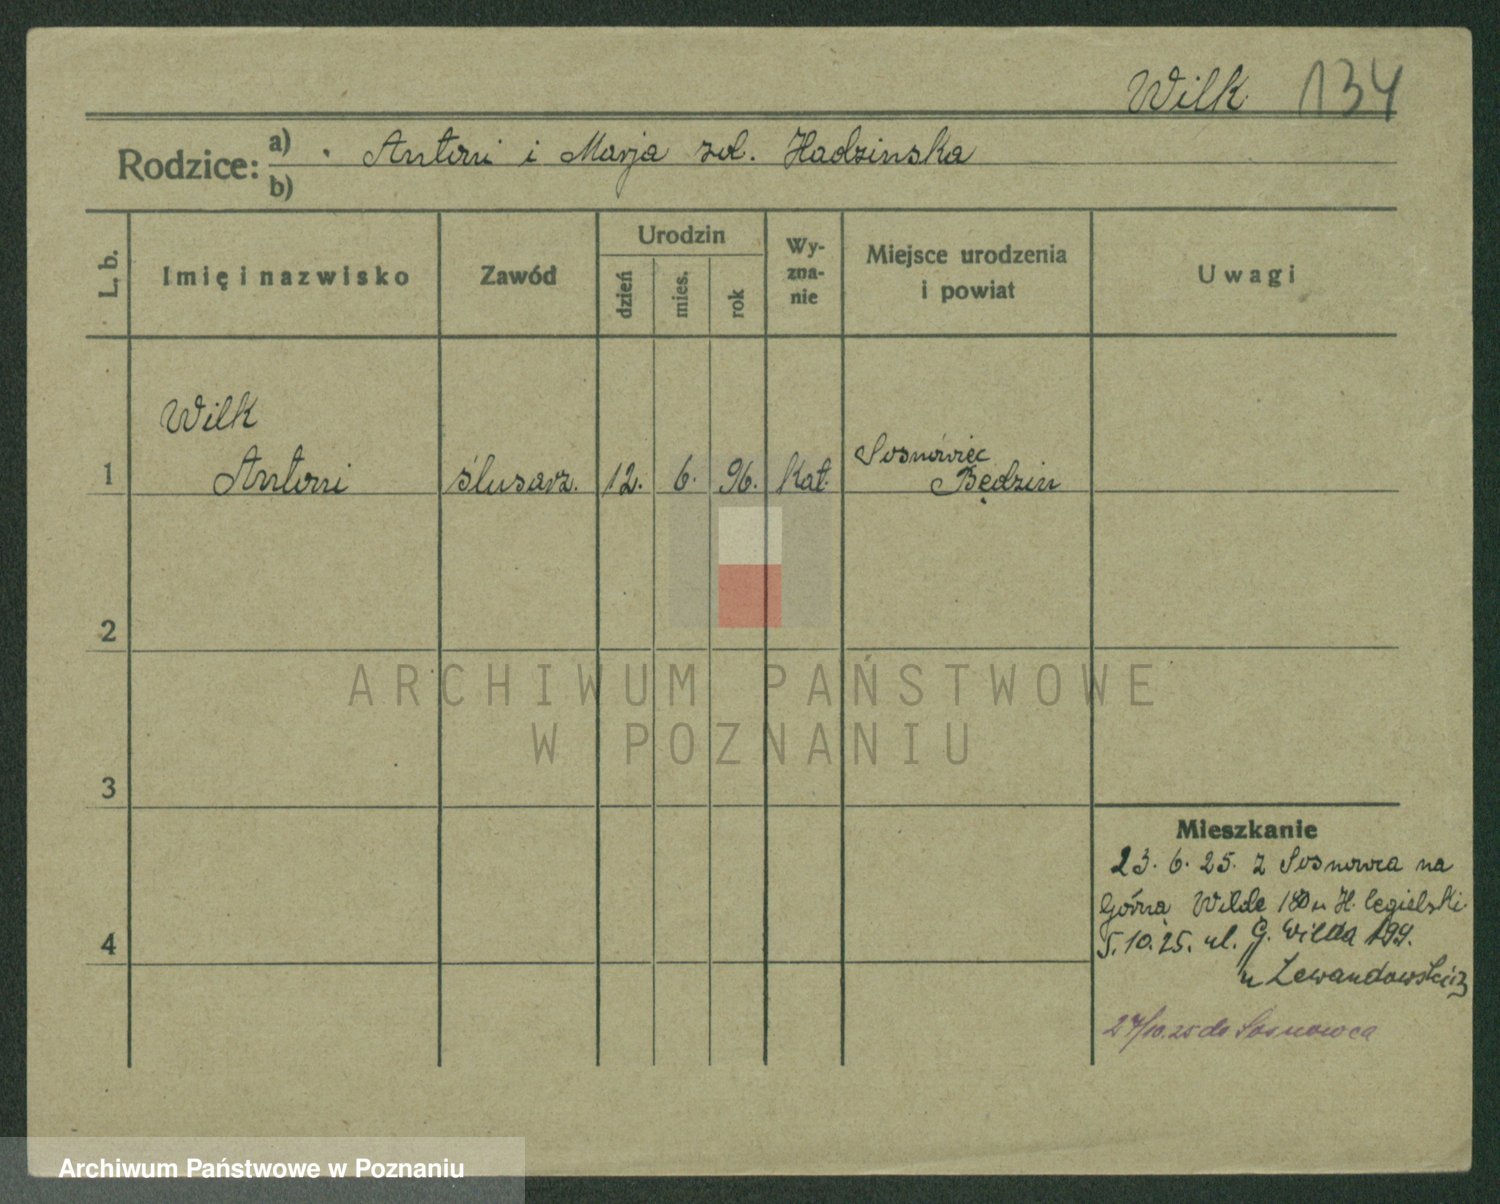 Wilk 134
Rodzice: a) Antoni i Marja zd. Hadzinska
b)
L. b.
Imię i nazwisko
Zawód
Urodzin
dzień
mies.
rok
Wy-
zna-
nie
Miejsce urodzenia
i powiat
Uwagi
Wilk
1 Antoni ślusarz. 12. 6. 96. Kat. Sosnowiec
Będzin
2
3
4
ARCHIWUM PAŃSTWOWE
W POZNANIU
Mieszkanie
23. 6. 25. z Sosnowca na
Górną Wildę 180 u H. Cegielski
5.10.25. ul. G. Wilda 199.
u Lewandowskiej
27/10.25 do Sosnowca
Archiwum Państwowe w Poznaniu